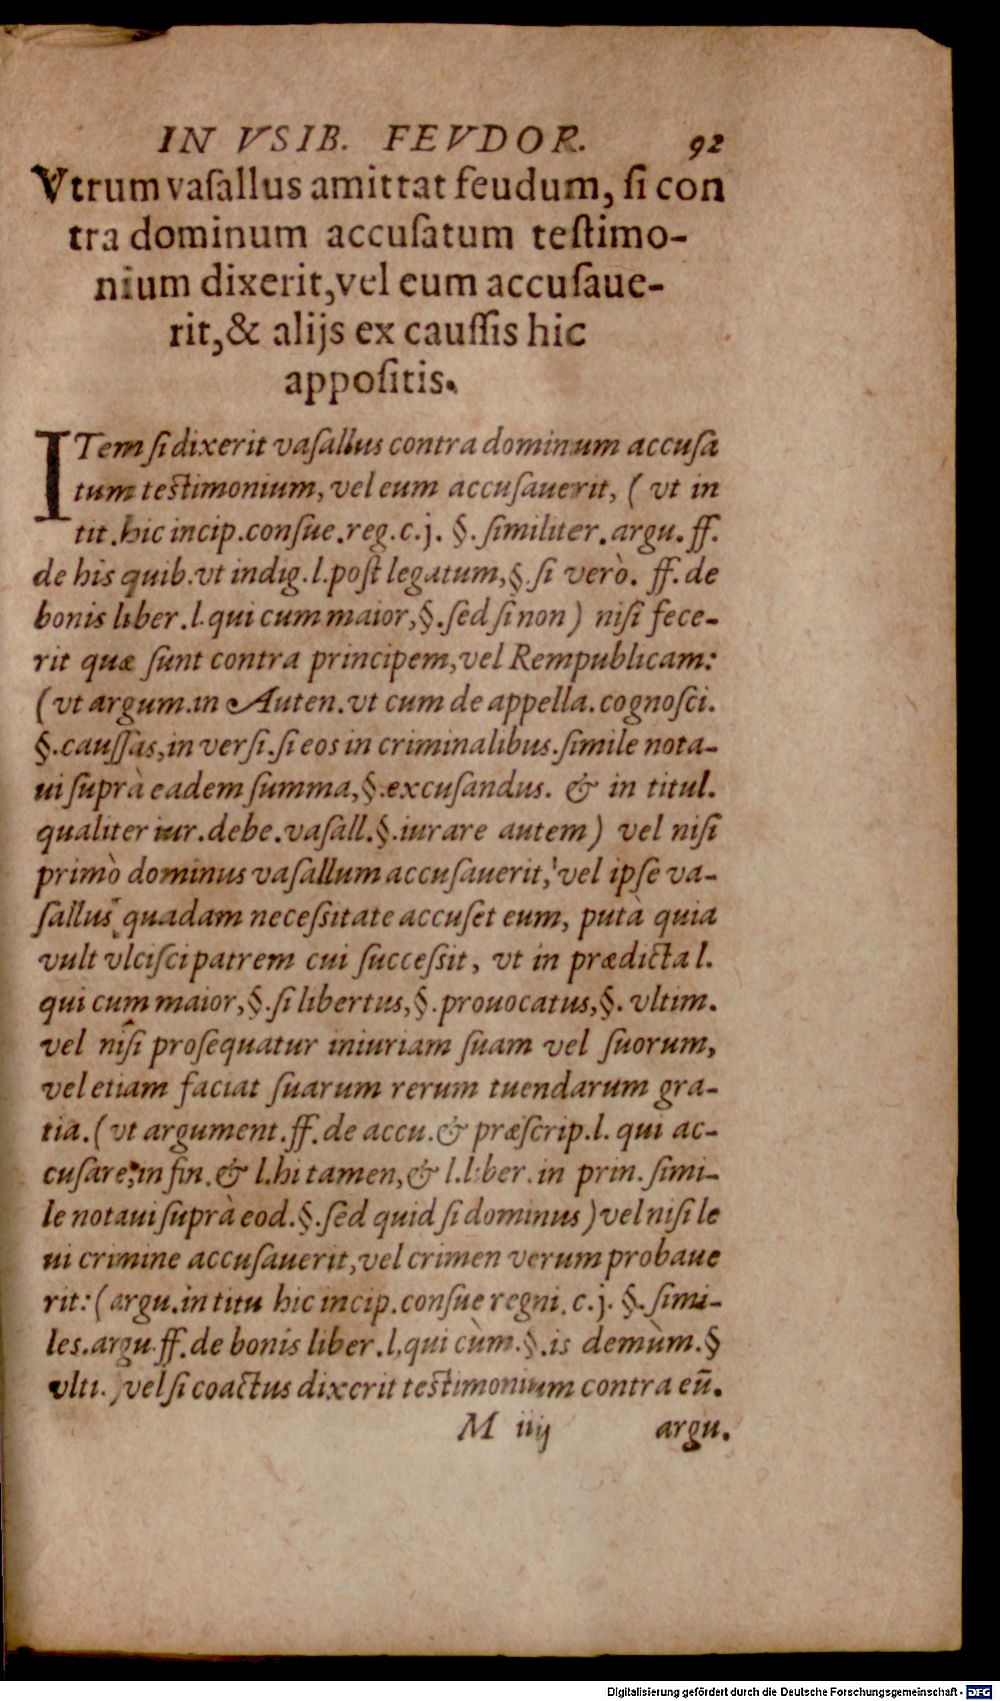 IN VSIB. FEVDOR. 92
Vtrum vaſallus amittat feudum, ſi con
tra dominum accuſatum teſtimo-
nium dixerit, vel eum accuſaue-
rit, & alijs ex cauſſis hic
appoſitis.
ITem ſi dixerit vaſallus contra dominum accuſa
tum teſtimonium, vel eum accuſauerit, ( vt in
tit. hic incip. conſue. reg. c. j. §. ſimiliter. argu. ff.
de his quib. vt indig. l. poſt legatum, §. ſi verò. ff. de
bonis liber. l. qui cum maior, §. ſed ſi non ) niſi fece-
rit quæ ſunt contra principem, vel Rempublicam:
( vt argum. in Auten. vt cum de appella. cognoſci.
§. cauſſas, in verſi. ſi eos in criminalibus. ſimile nota-
ui ſuprà eadem ſumma, §. excuſandus. & in titul.
qualiter iur. debe. vaſall. §. iurare autem ) vel niſi
primò dominus vaſallum accuſauerit, vel ipſe va-
ſallus quadam neceſſitate accuſet eum, putà quia
vult vlciſci patrem cui ſucceſſit, vt in prædicta l.
qui cum maior, §. ſi libertus, §. prouocatus, §. vltim.
vel niſi proſequatur iniuriam ſuam vel ſuorum,
vel etiam faciat ſuarum rerum tuendarum gra-
tia. ( vt argument. ff. de accu. & præſcrip. l. qui ac-
cuſare, in fin. & l. hi tamen, & l. liber. in prin. ſimi-
le notaui ſuprà eod. §. ſed quid ſi dominus ) vel niſi le
ui crimine accuſauerit, vel crimen verum probaue
rit: ( argu. in titu hic incip. conſue regni. c. j. §. ſimi-
les. argu. ff. de bonis liber. l. qui cùm. §. is demùm. §
vlti. ) vel ſi coactus dixerit teſtimonium contra eū.
M iiij argu.
Digitalisierung gefördert durch die Deutsche Forschungsgemeinschaft - DFG